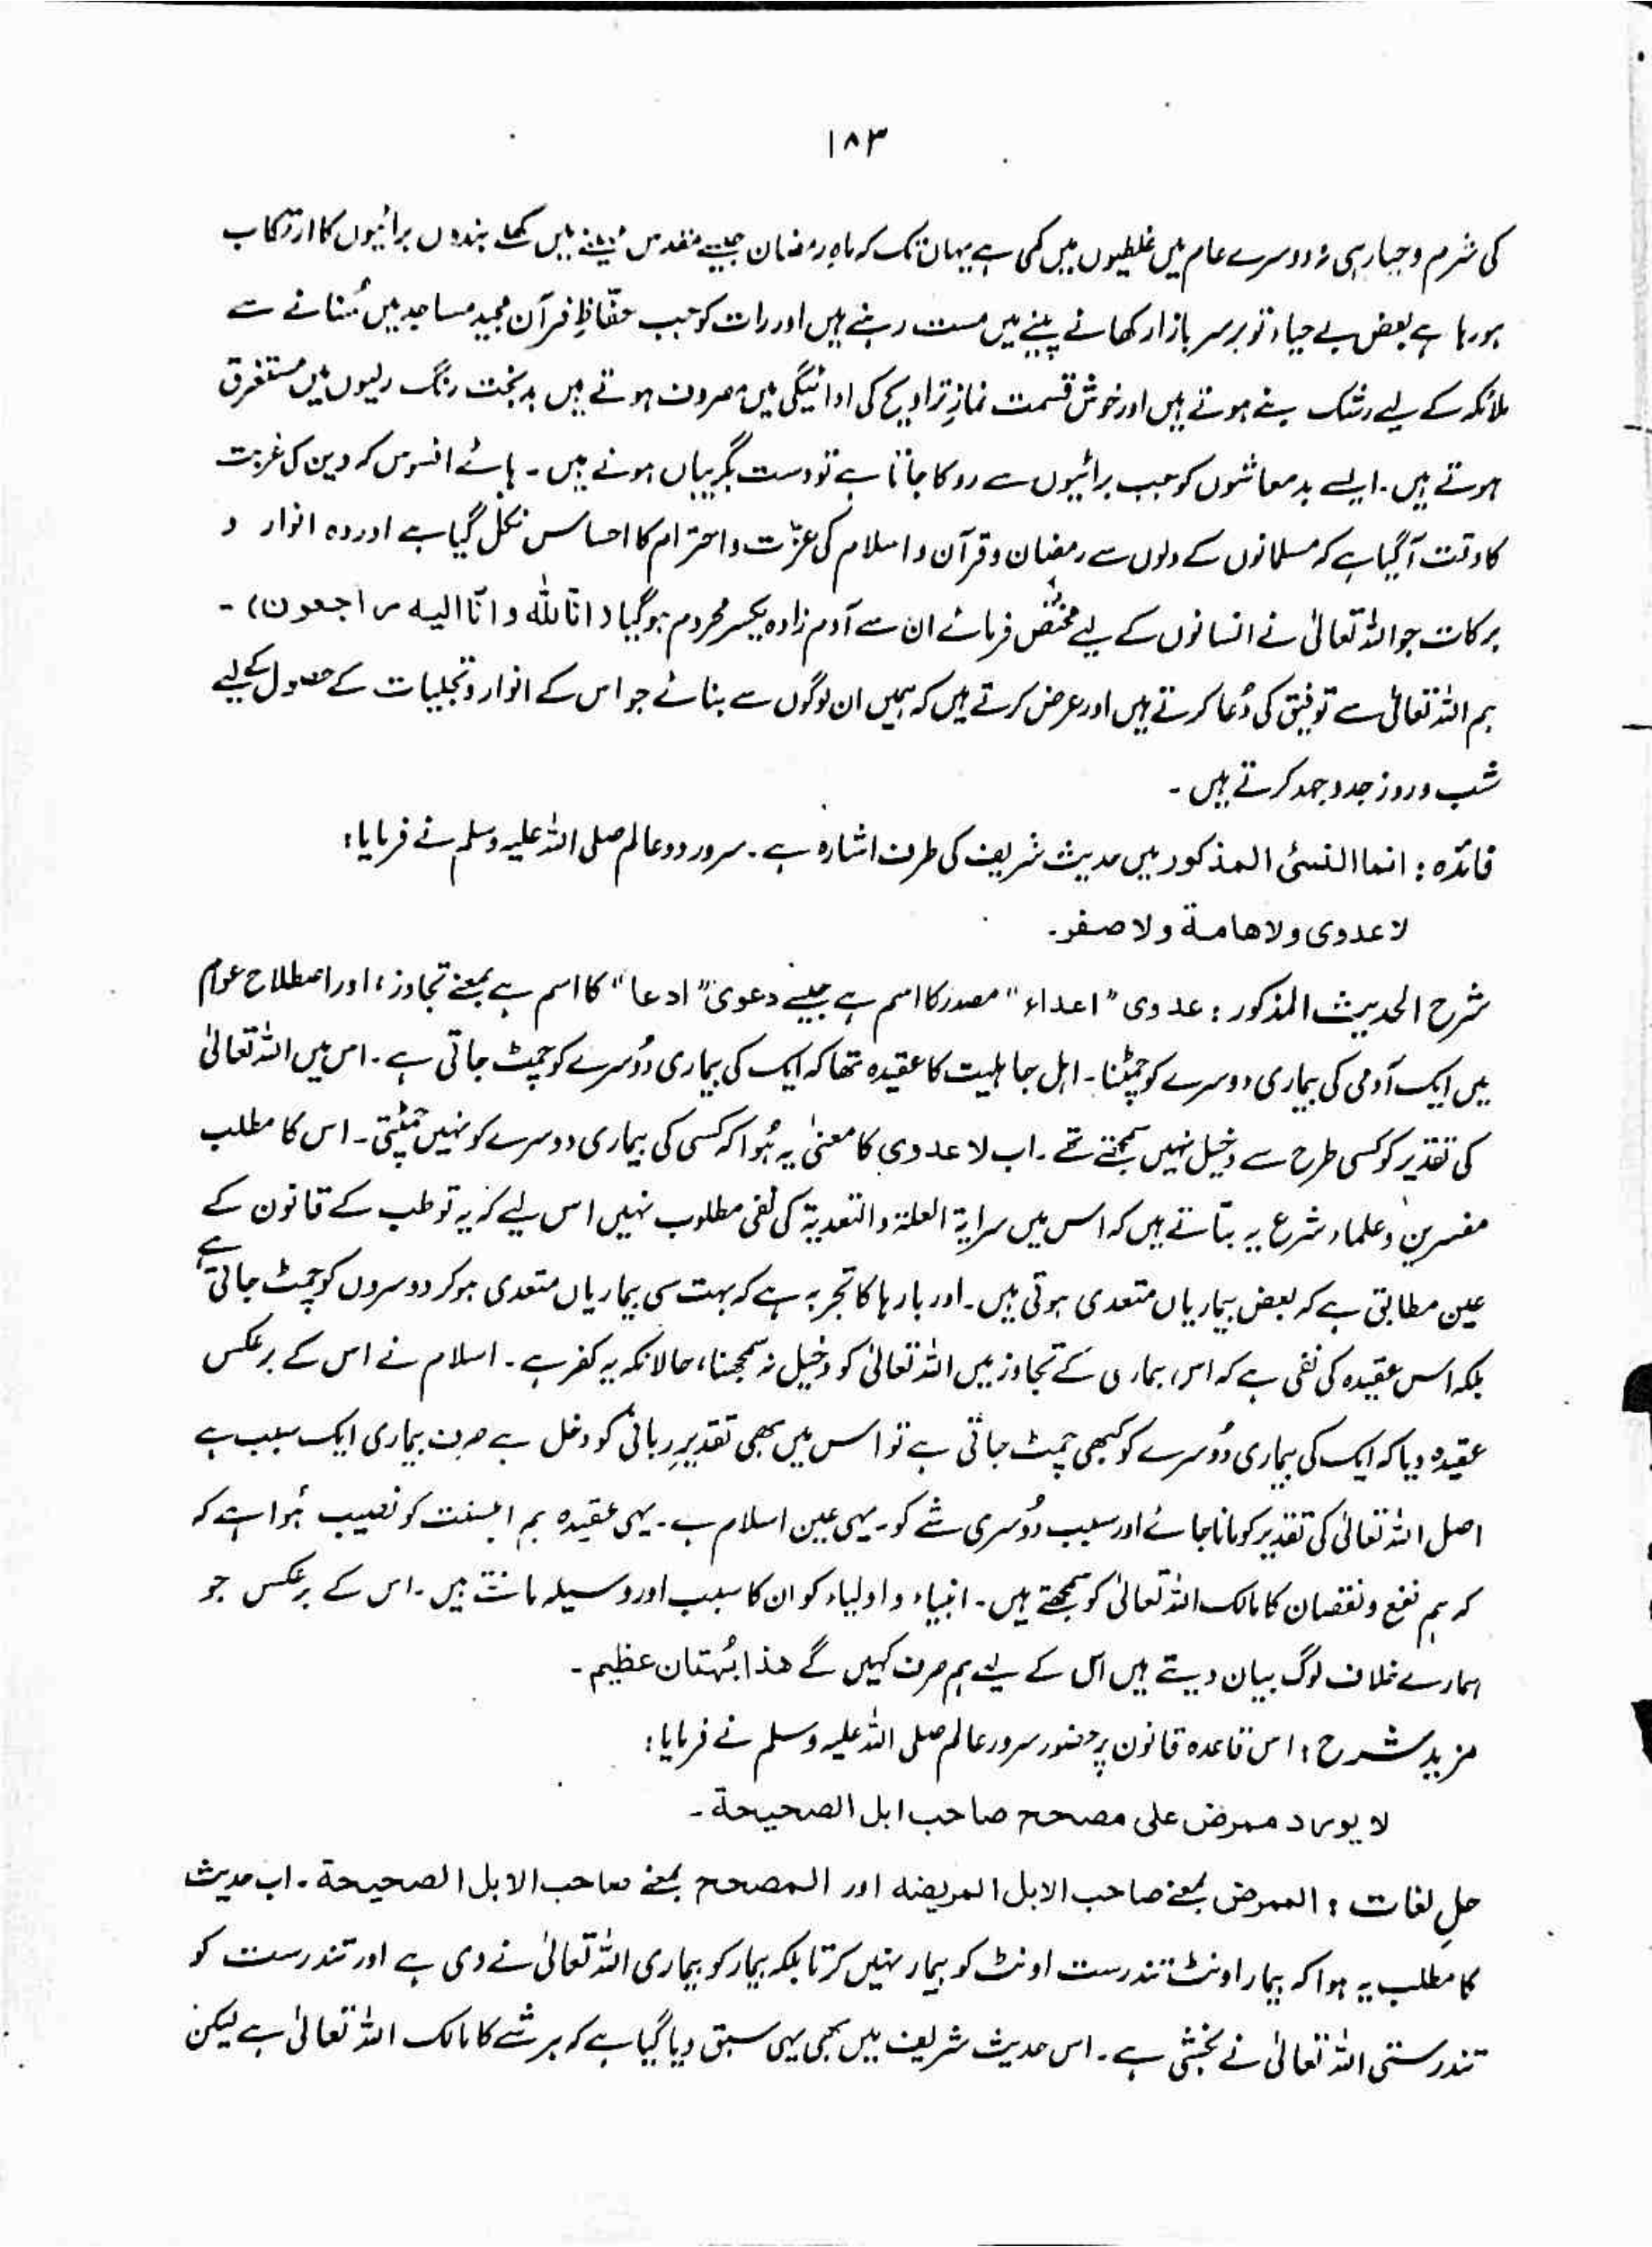 ۱۸۳
کی شرم و حیا رہی نہ دوسرے عام میں غلطیوں میں کمی ہے یہاں تک کہ ماہِ رمضان جیسے مقدس مہینے میں کھلے بندوں برائیوں کا ارتکاب
ہو رہا ہے بعض بے حیاء تو برسر بازار کھانے پینے میں مست رہتے ہیں اور رات کو جب حفّاظِ قرآن مجید مساجد میں سُنانے سے
ملائکہ کے لیے رشک بنے ہوتے ہیں اور خوش قسمت نمازِ تراویح کی ادائیگی میں مصروف ہوتے ہیں بدبخت رنگ رلیوں میں مستغرق
ہوتے ہیں۔ ایسے بدمعاشوں کو جب برائیوں سے روکا جاتا ہے تو دست بگریباں ہوتے ہیں۔ ہائے افسوس کہ دین کی غربت
کا وقت آگیا ہے کہ مسلمانوں کے دلوں سے رمضان و قرآن و اسلام کی عزّت و احترام کا احساس نکل گیا ہے اور وہ انوار و
برکات جو اللہ تعالیٰ نے انسانوں کے لیے مختص فرمائے ان سے آدم زادہ یکسر محروم ہوگیا (انا للہ و انّا الیہ راجعون)۔
ہم اللہ تعالیٰ سے توفیق کی دُعا کرتے ہیں اور عرض کرتے ہیں کہ ہمیں ان لوگوں سے بنائے جو اس کے انوار و تجلیات کے حصول کے لیے
شب و روز جدوجہد کرتے ہیں۔
فائدہ : انما النسئ المذکور میں حدیث شریف کی طرف اشارہ ہے۔ سرور دو عالم صلی اللہ علیہ وسلم نے فرمایا:
لا عدوی ولا ھامة ولا صفر۔
شرح الحدیث المذکور : عدوی "اعداء" مصدر کا اسم ہے جیسے دعویٰ "ادعا" کا اسم ہے بمعنے تجاوز، اور اصطلاح عوام
میں ایک آدمی کی بیماری دوسرے کو چمٹنا۔ اہل جاہلیت کا عقیدہ تھا کہ ایک کی بیماری دُوسرے کو چمٹ جاتی ہے۔ اس میں اللہ تعالیٰ
کی تقدیر کو کسی طرح سے دخیل نہیں سمجھتے تھے۔ اب لا عدوی کا معنیٰ یہ ہُوا کہ کسی کی بیماری دوسرے کو نہیں چمٹتی۔ اس کا مطلب
مفسرین و علماء شرع یہ بتاتے ہیں کہ اس میں سرایة العلة والتعدیة کی نفی مطلوب نہیں اس لیے کہ یہ تو طب کے قانون کے
عین مطابق ہے کہ بعض بیماریاں متعدی ہوتی ہیں۔ اور بارہا کا تجربہ ہے کہ بہت سی بیماریاں متعدی ہوکر دوسروں کو چمٹ جاتی ہے
بلکہ اس عقیدہ کی نفی ہے کہ اس بیماری کے تجاوز میں اللہ تعالیٰ کو دخیل نہ سمجھنا، حالانکہ یہ کفر ہے۔ اسلام نے اس کے برعکس
عقیدہ دیا کہ ایک کی بیماری دُوسرے کو کبھی چمٹ جاتی ہے تو اس میں بھی تقدیرِ ربانی کو دخل ہے صرف بیماری ایک سبب ہے
اصل اللہ تعالیٰ کی تقدیر کو مانا جائے اور سبب دُوسری شے کو۔ یہی عین اسلام ہے۔ یہی عقیدہ ہم اہلسنت کو نصیب ہُوا ہے کہ
کہ ہم نفع و نقصان کا مالک اللہ تعالیٰ کو سمجھتے ہیں۔ انبیاء و اولیاء کو ان کا سبب اور وسیلہ مانتے ہیں۔ اس کے برعکس جو
ہمارے خلاف لوگ بیان دیتے ہیں اس کے لیے ہم صرف کہیں گے ھذا بُہتان عظیم۔
مزید شرح : اس قاعدہ قانون پر حضور سرور عالم صلی اللہ علیہ وسلم نے فرمایا:
لا یورد ممرض علی مصحح صاحب ابل الصحیحة۔
حلِ لغات : الممرض بمعنے صاحب الابل المریضہ اور المصحح بمعنے صاحب الابل الصحیحة۔ اب حدیث
کا مطلب یہ ہوا کہ بیمار اونٹ تندرست اونٹ کو بیمار نہیں کرتا بلکہ بیمار کو بیماری اللہ تعالیٰ نے دی ہے اور تندرست کو
تندرستی اللہ تعالیٰ نے بخشی ہے۔ اس حدیث شریف میں بھی یہی سبق دیا گیا ہے کہ ہر شے کا مالک اللہ تعالیٰ ہے لیکن